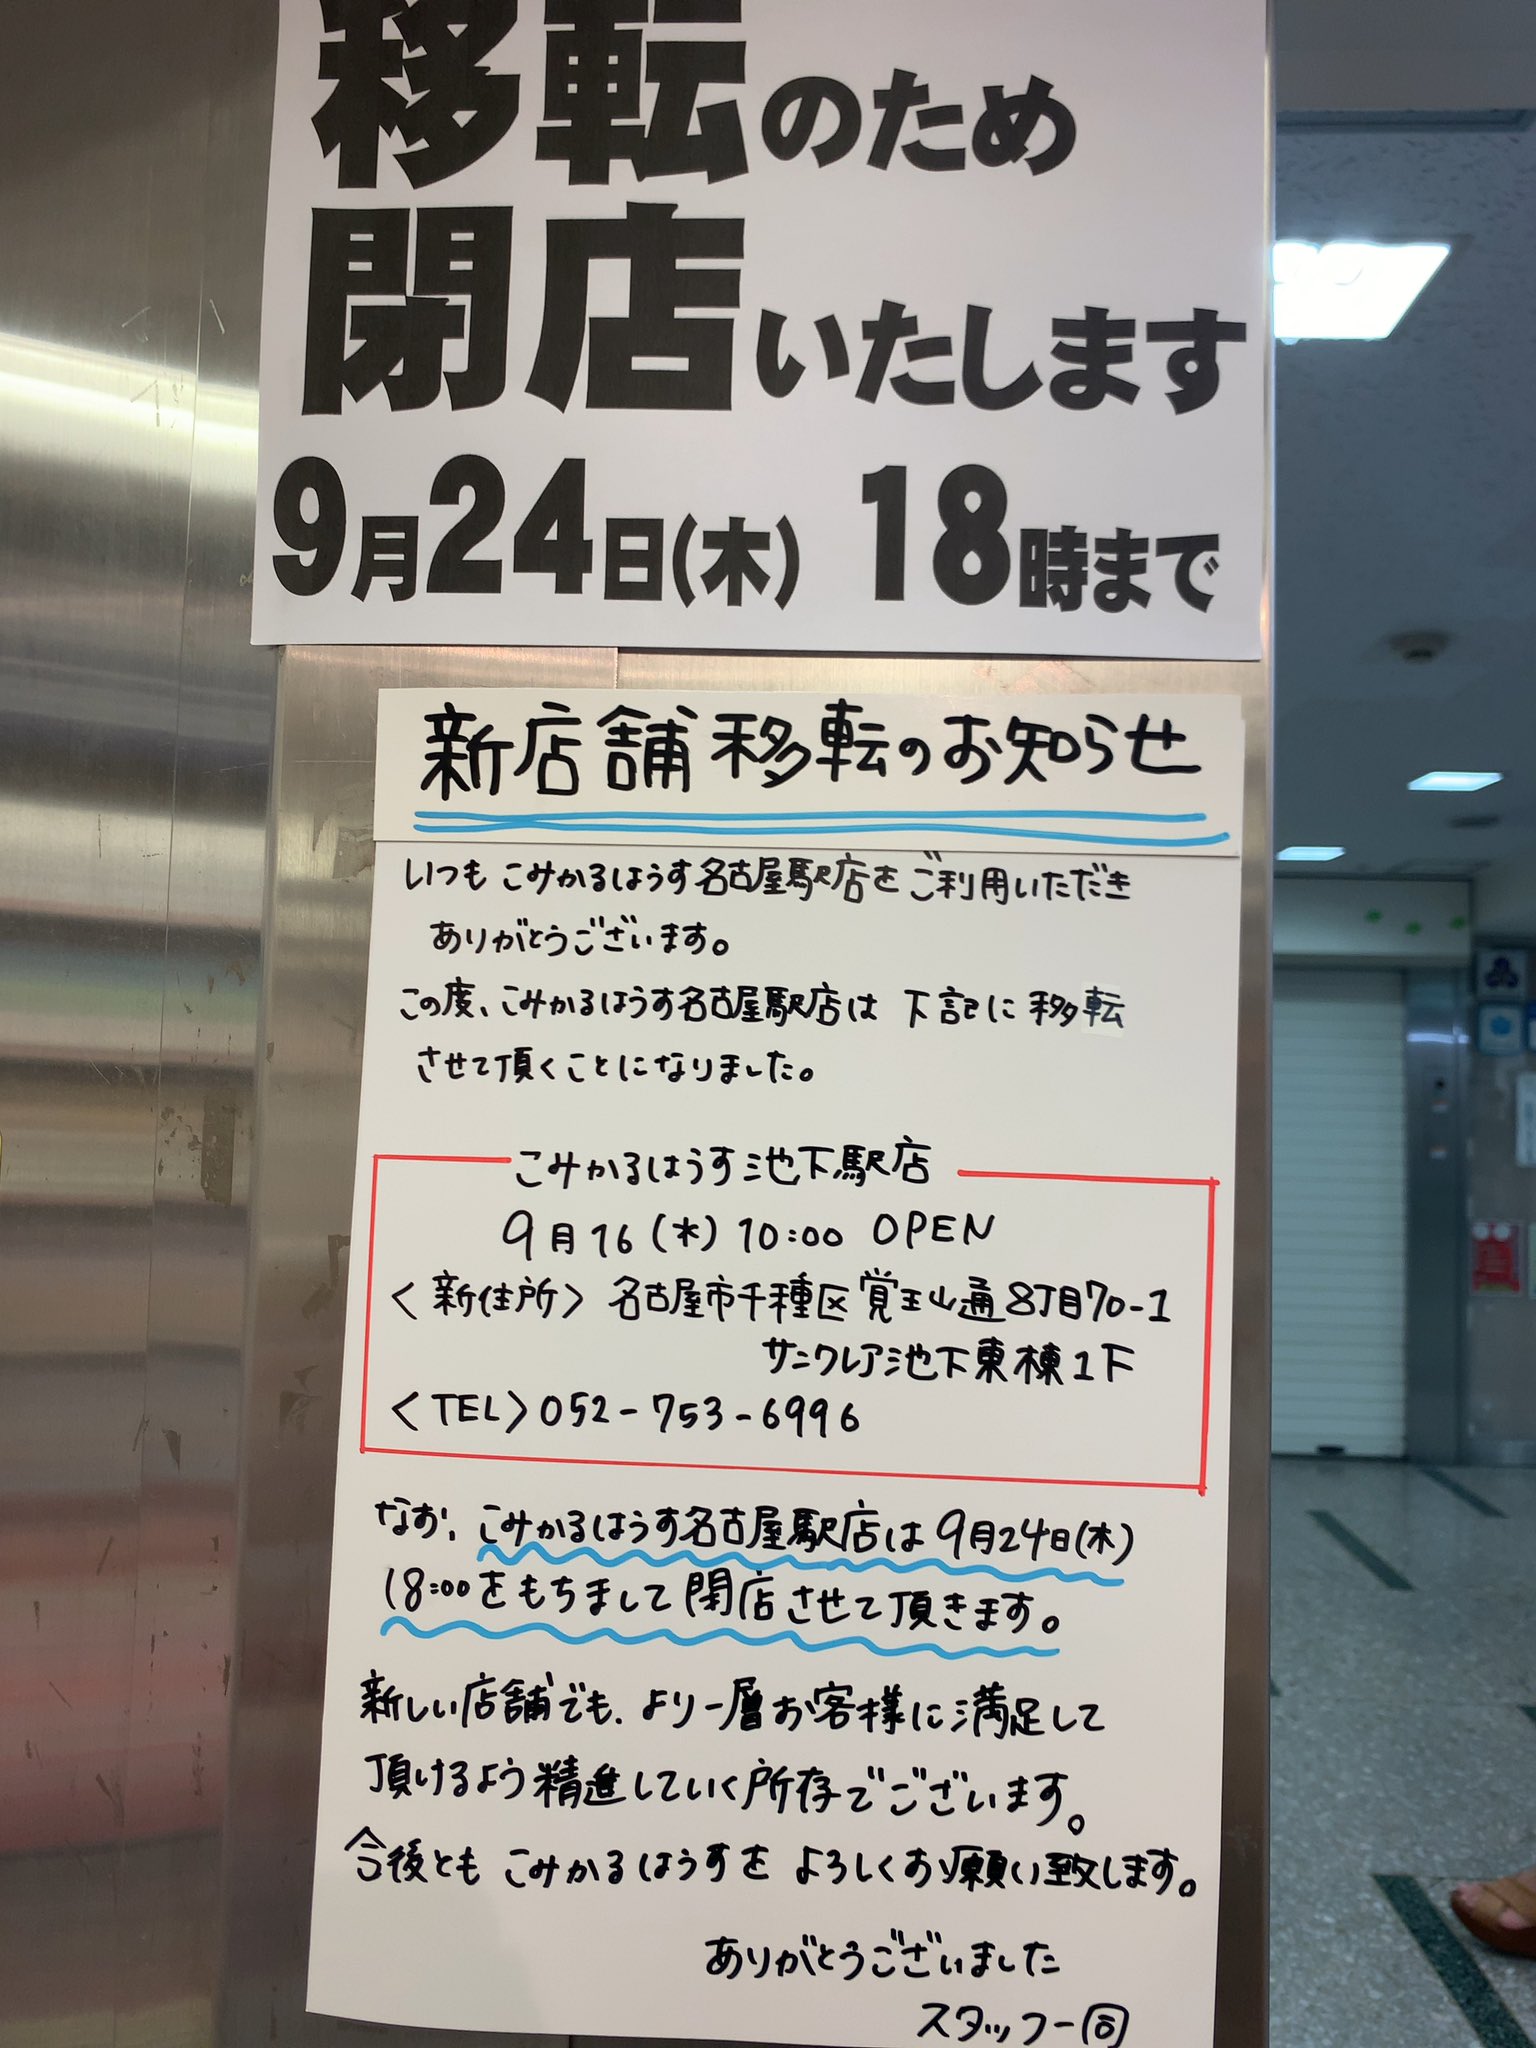 移転のため
閉店いたします
9月24日(木) 18時まで
新店舗移転のお知らせ
いつもこみかるはうす名古屋駅店をご利用いただき
ありがとうございます。
この度、こみかるはうす名古屋駅店は下記に移転
させて頂くことになりました。
こみかるはうす池下駅店
9月16(水)10:00 OPEN
<新住所>名古屋市千種区覚王山通8丁目70-1
サンクレア池下東棟1F
<TEL>052-753-6996
なお、こみかるはうす名古屋駅店は9月24日(木)
18:00をもちまして閉店させて頂きます。
新しい店舗でも、より一層お客様に満足して
頂けるよう精進していく所存でございます。
今後ともこみかるはうすをよろしくお願い致します。
ありがとうございました
スタッフ一同